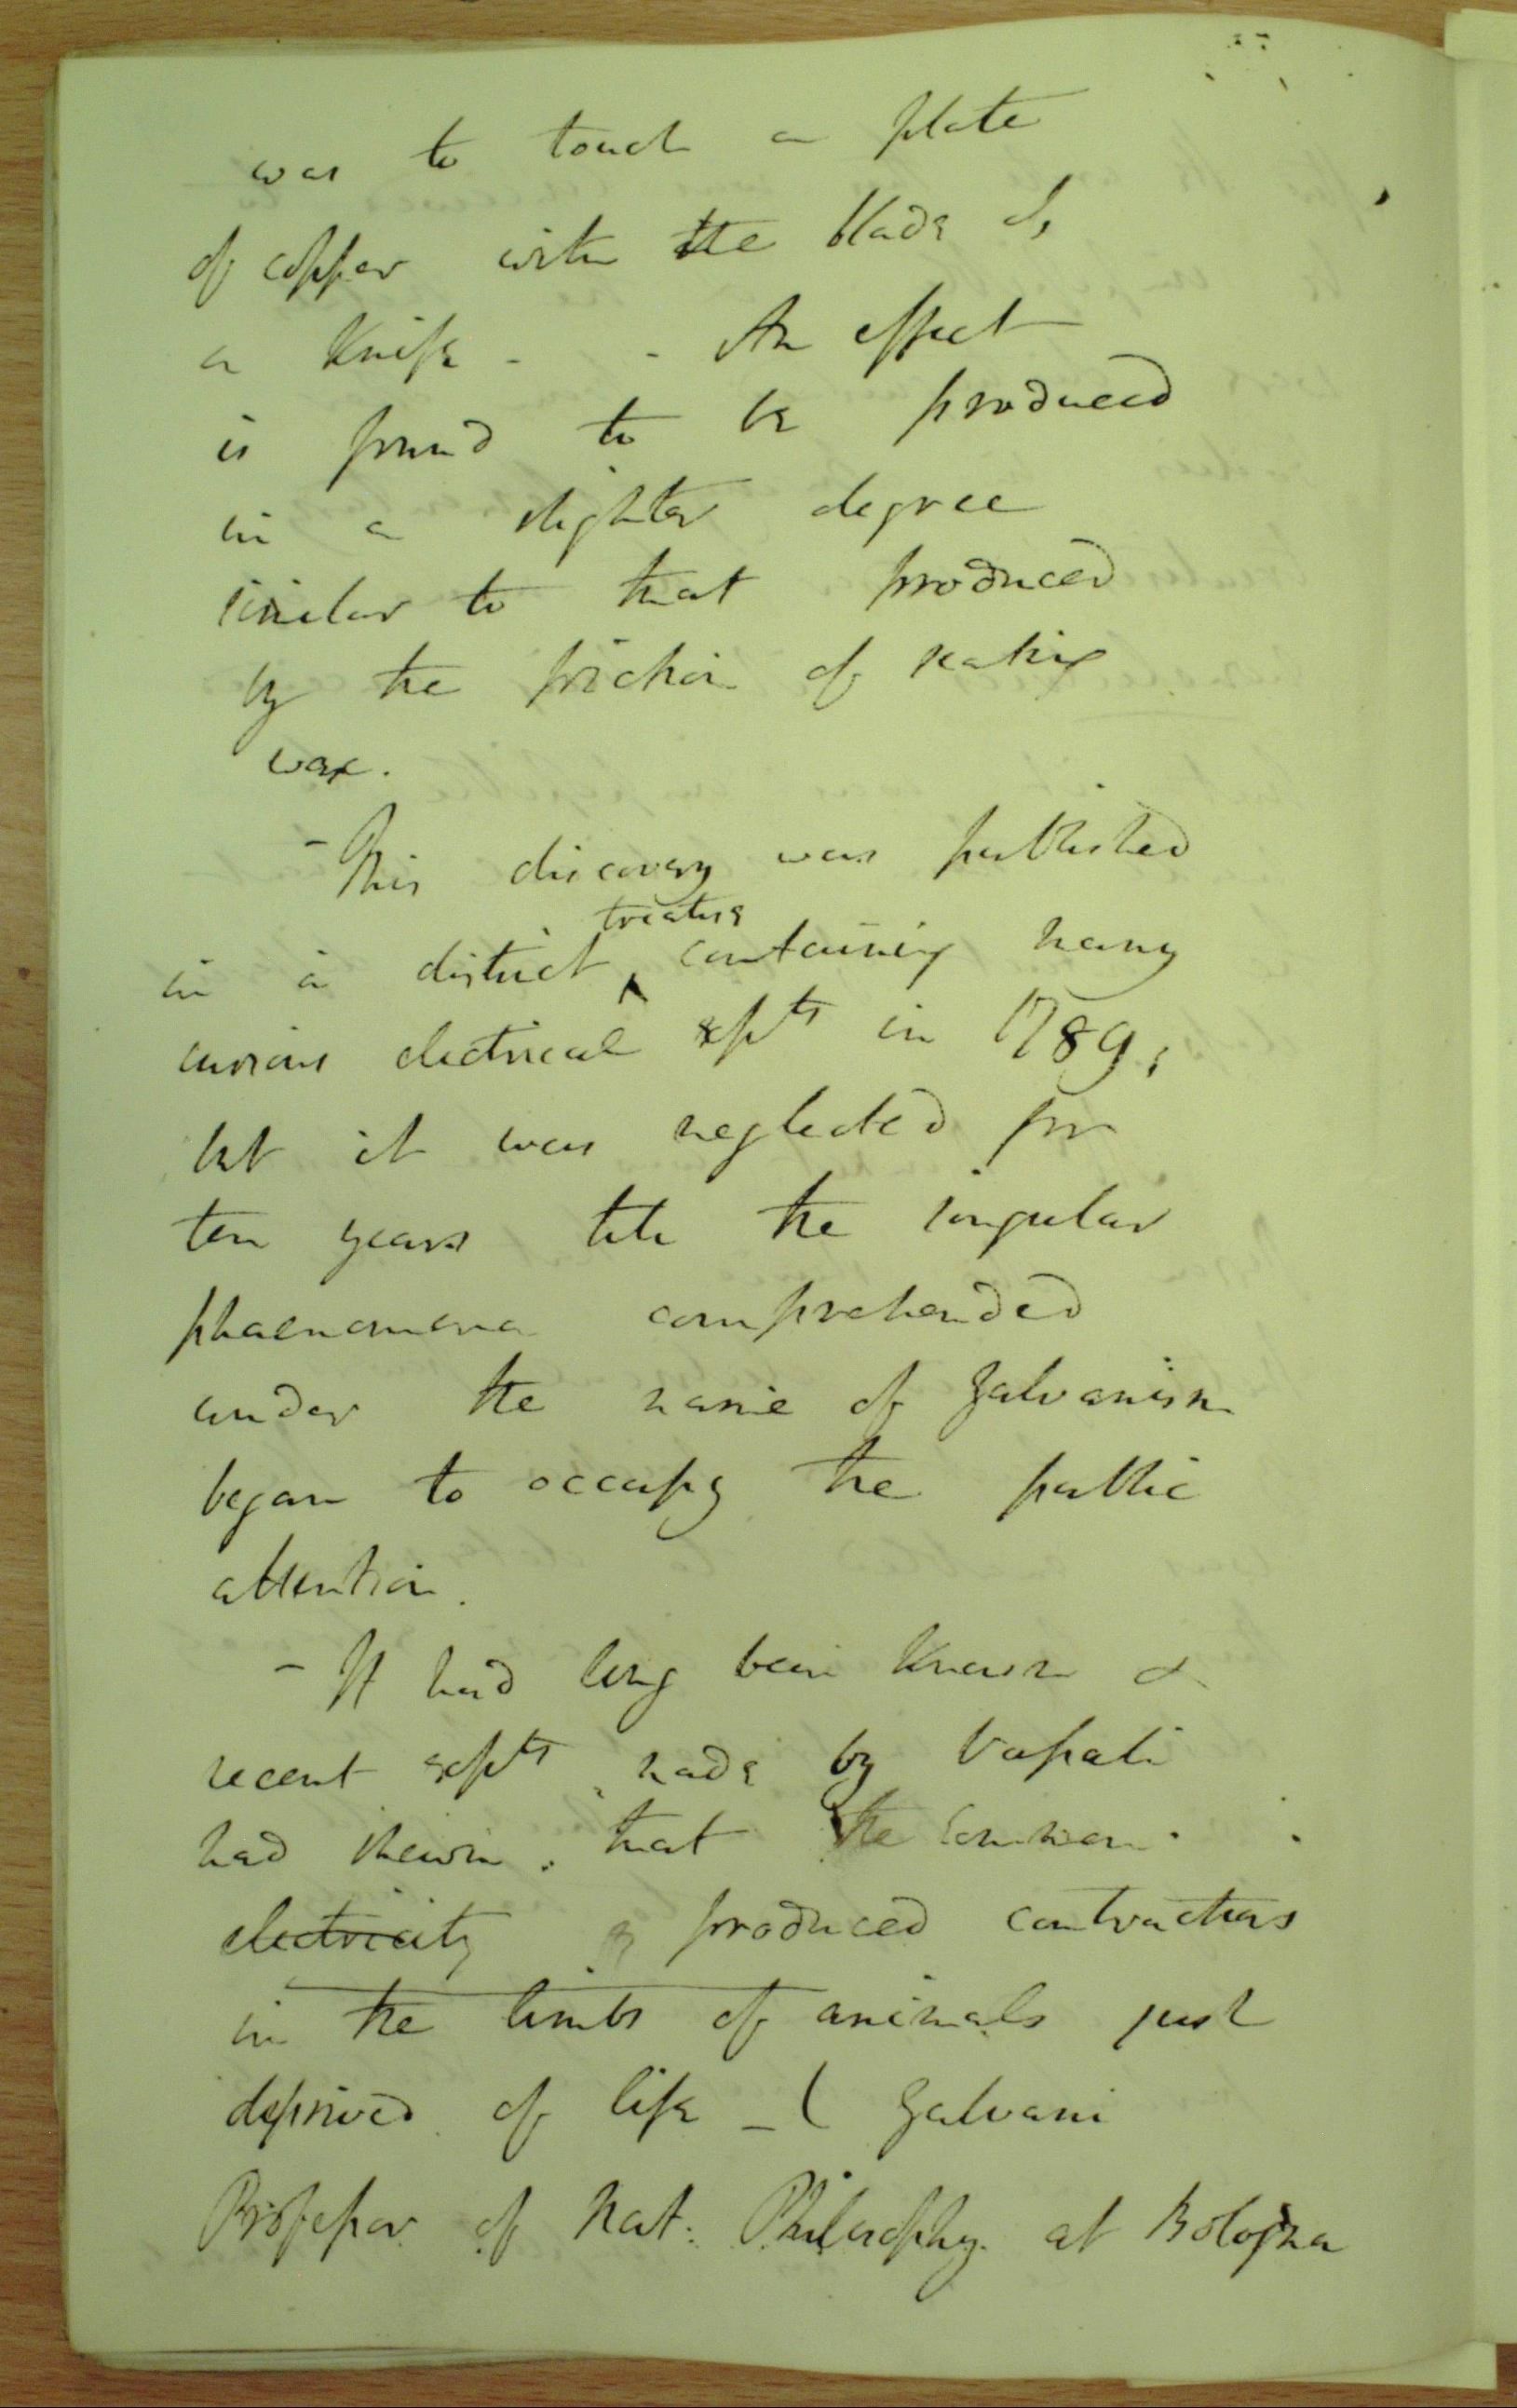 was to touch a plate
of copper with the blade of
a Knife - - An effect
is found to be produced
in a slighter degree
similar to that produced
by the friction of sealing
wax.
- This discovery was published
treatise
in a distinct ‸ containing many
curious electrical expts in 1789;
but it was neglected for
ten years till the singular
phaenomena comprehended
under the name of Galvanism
began to occupy the public
attention.
- It had long been known &
recent expts made by Vassali
had shewn. that the common
electricity produced contractions
in the limbs of animals just
deprived of life - ( Galvani
Professor of Nat: Philosophy. at Bologna